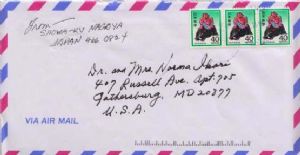 From
SHOWA-KU NAGOYA
JAPAN 466
40
40
40
Dr. and Mrs Norma
407 Russell Ave. Apt. 705
Gathersburg, MD 20877
U. S. A.
VIA AIR MAIL